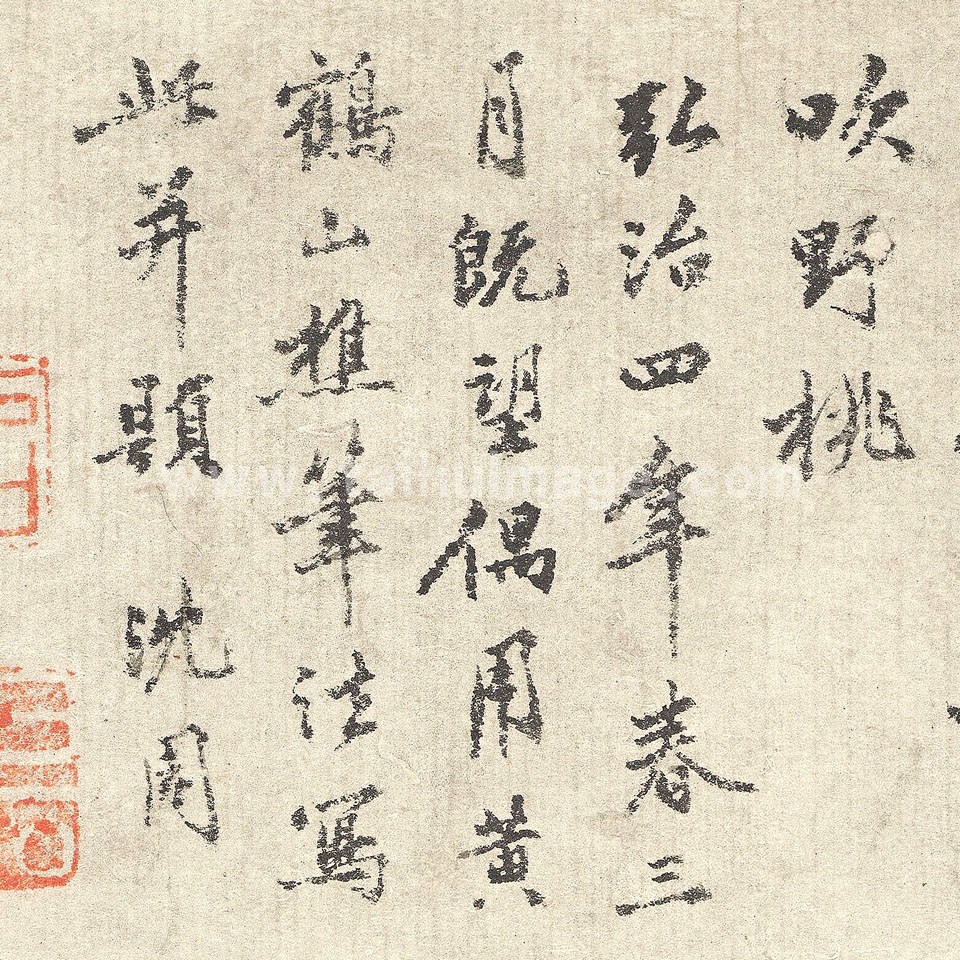 吹野桃
弘治四年春三
月既望偶用黄
鶴山樵筆法寫
此并題 沈周